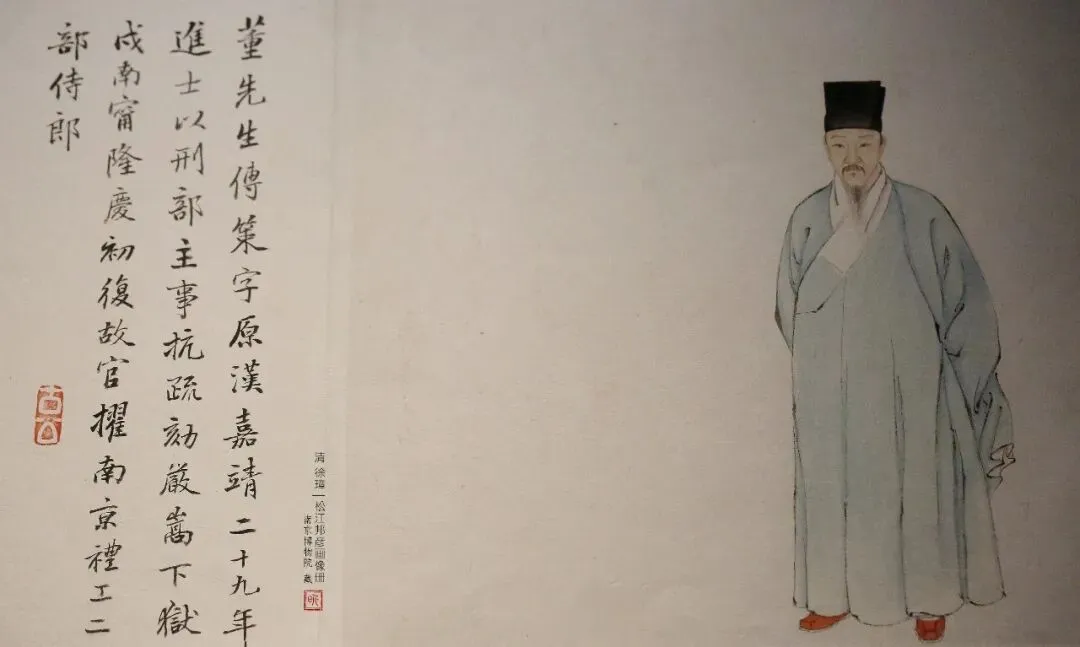 董先生傳策字原漢嘉靖二十九年
進士以刑部主事抗疏劾嚴嵩下獄
戍南甯隆慶初復故官擢南京禮工二
部侍郎
清 徐璋｜松江邦彦画像册
南京博物院 藏